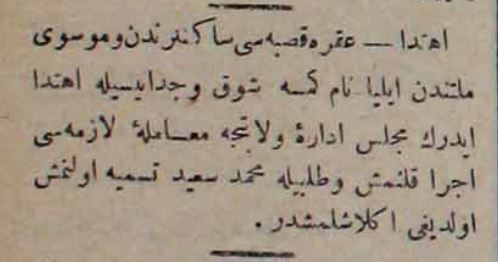 اهتدا — عقره قصبه‌سی ساكنلرندن و موسوی
ملتندن ایلیا نام كمسه شوق وجدانیسیله اهتدا
ایدرك مجلس ادارهٔ ولایتجه معاملهٔ لازمه‌سی
اجرا قلنمش وطلبیله محمد سعید تسمیه اولنمش
اولدیغی اكلاشلمشدر .